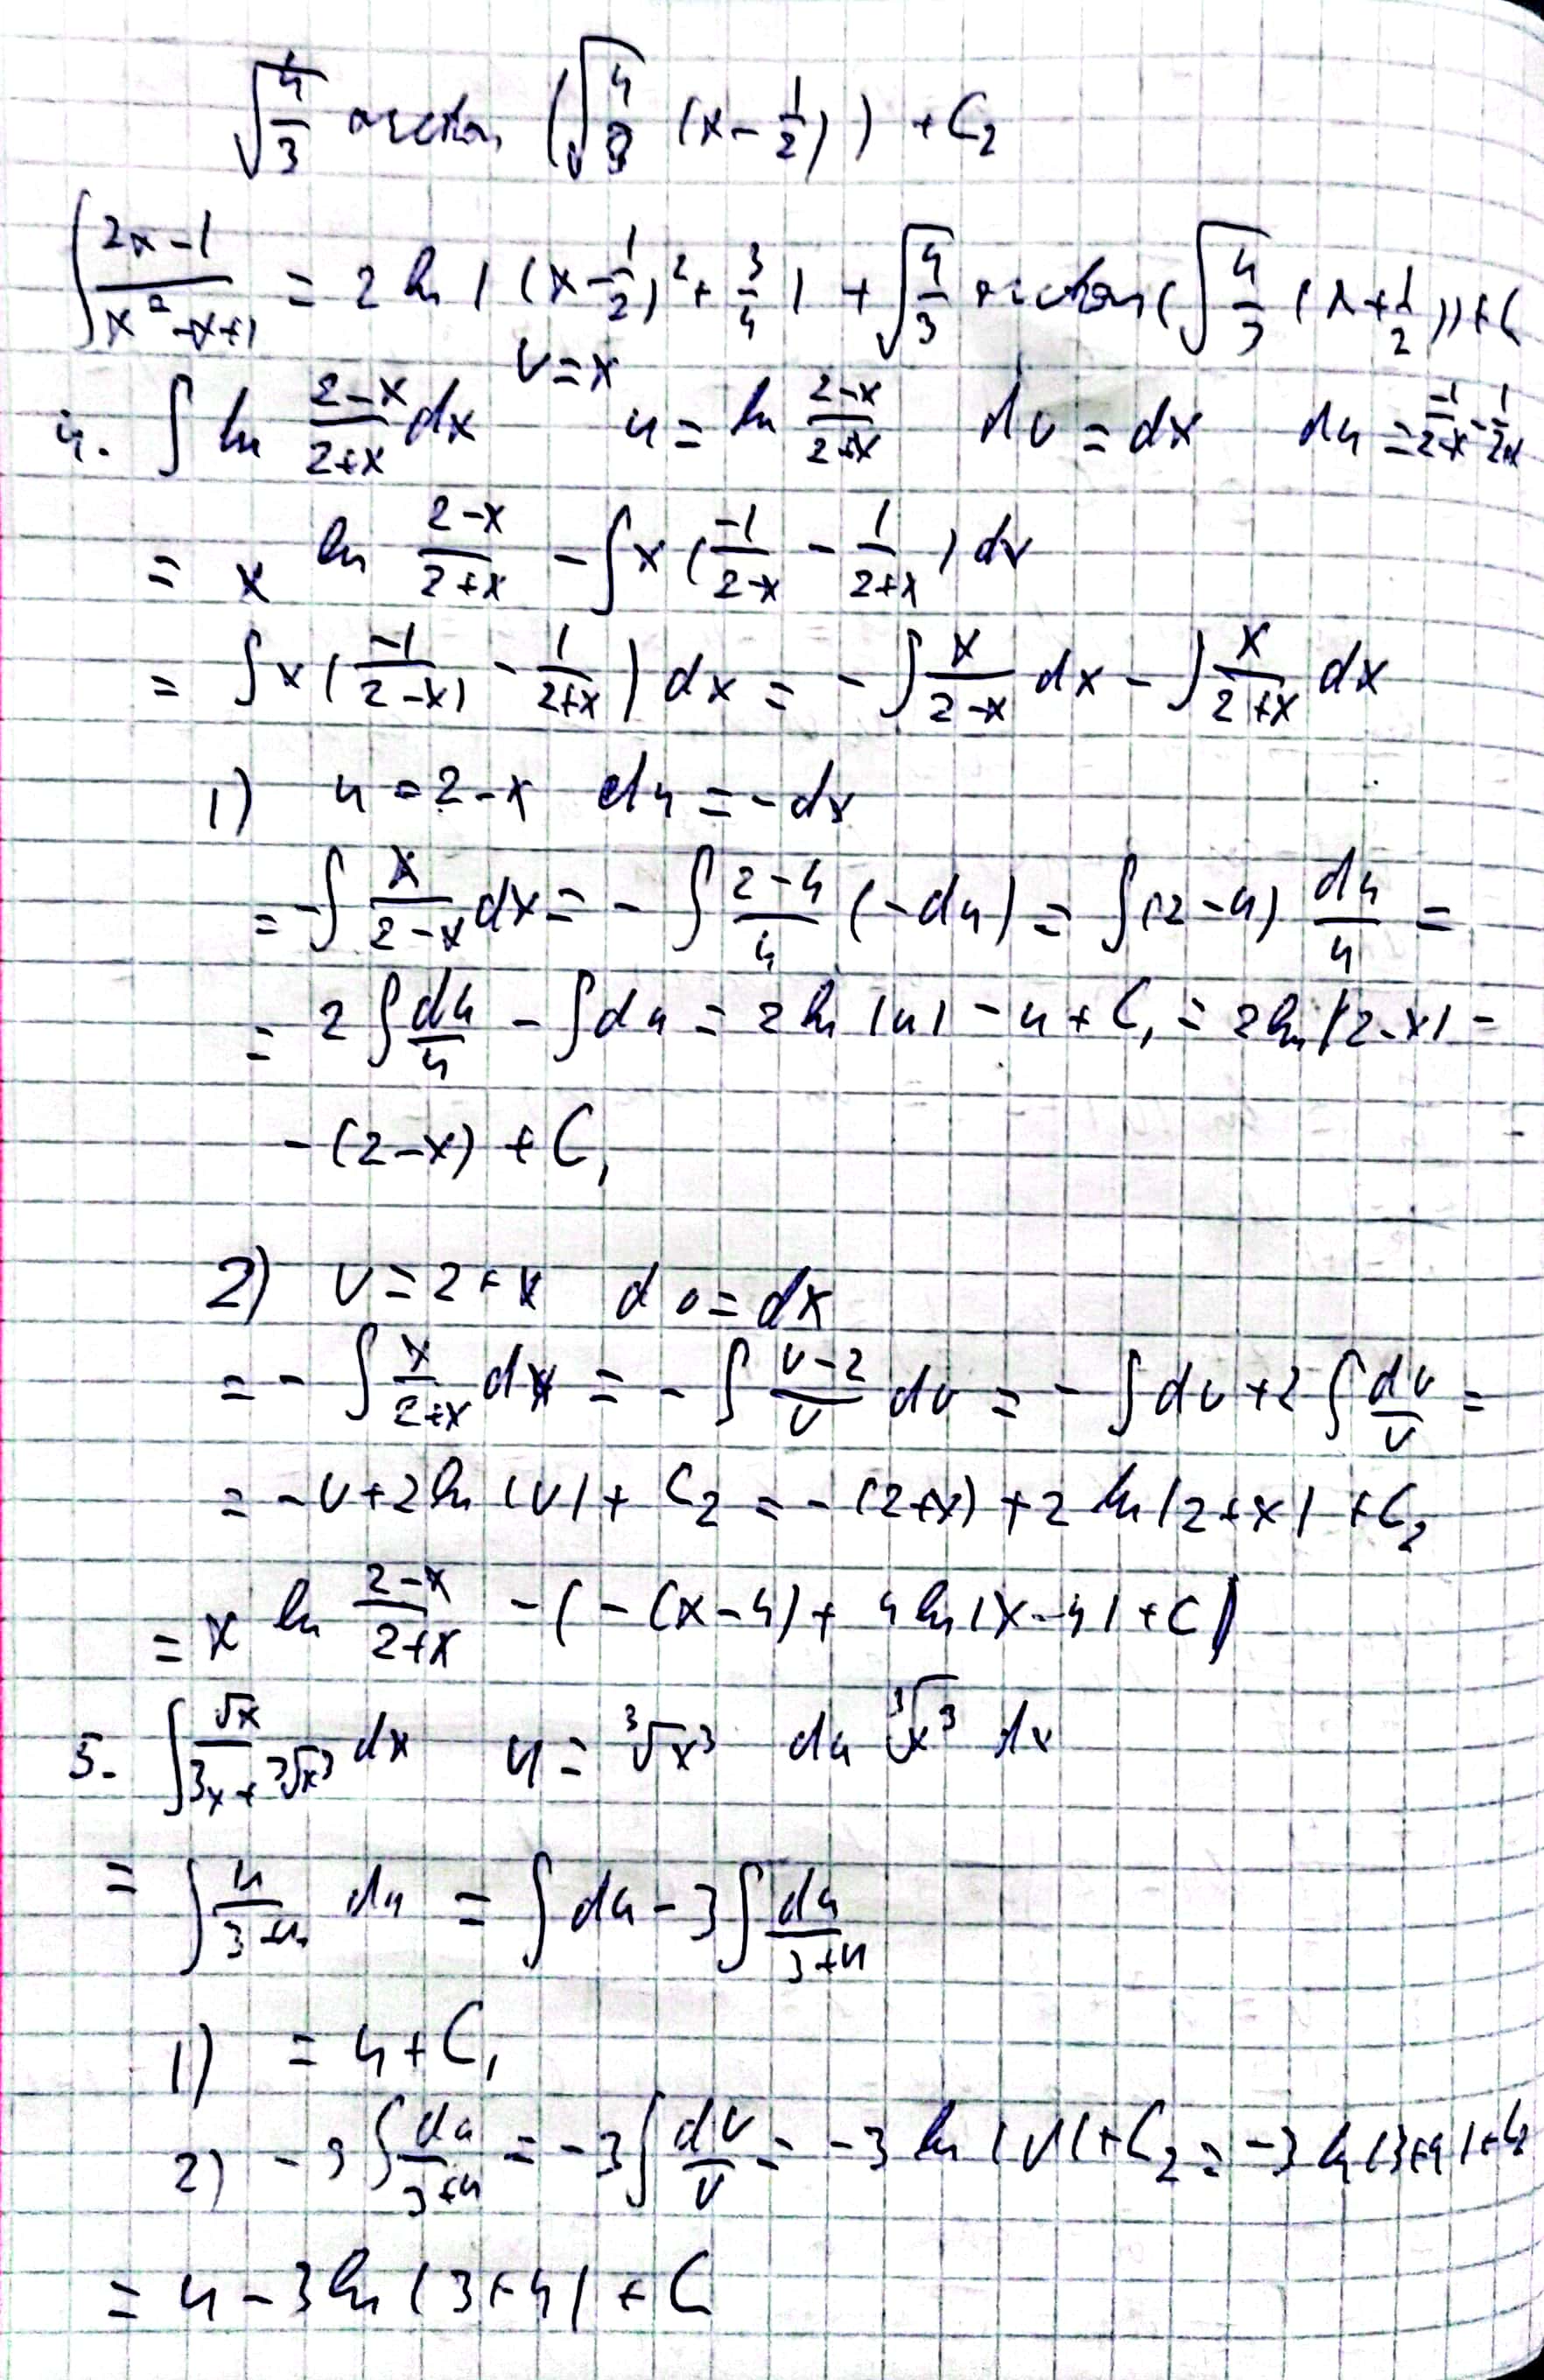 √(4/3) arctan (√(4/3) (x - 1/2)) + C₂
∫ (2x-1)/(x²-x+1) = 2 ln |(x-1/2)² + 3/4| + √(4/3) arctan(√(4/3) (x+1/2)) + C
v=x
4. ∫ ln (2-x)/(2+x) dx u = ln (2-x)/(2+x) dv = dx du = -1/(2-x) - 1/(2+x)
= x ln (2-x)/(2+x) - ∫ x (-1/(2-x) - 1/(2+x)) dx
= ∫ x (-1/(2-x) - 1/(2+x)) dx = - ∫ x/(2-x) dx - ∫ x/(2+x) dx
1) u = 2-x du = -dx
= -∫ x/(2-x) dx = - ∫ (2-u)/u (-du) = ∫(2-u) du/u =
= 2 ∫ du/u - ∫du = 2 ln |u| - u + C₁ = 2 ln |2-x| -
- (2-x) + C₁
2) v = 2+x dv = dx
= - ∫ x/(2+x) dx = - ∫ (v-2)/v dv = - ∫ dv + 2 ∫ dv/v =
= -v + 2 ln |v| + C₂ = -(2+x) + 2 ln |2+x| + C₂
= x ln (2-x)/(2+x) - (-(x-4) + 4 ln |x-4| + C)
5. ∫ √x/(3x + ³√x³) dx u = ³√x³ du ³√x³ dx
= ∫ u/(3+u) du = ∫ du - 3 ∫ du/(3+u)
1) = u + C₁
2) - 3 ∫ du/(3+u) = -3 ∫ dv/v = -3 ln |v| + C₂ = -3 ln |3+u| + C₂
= u - 3 ln |3+u| + C